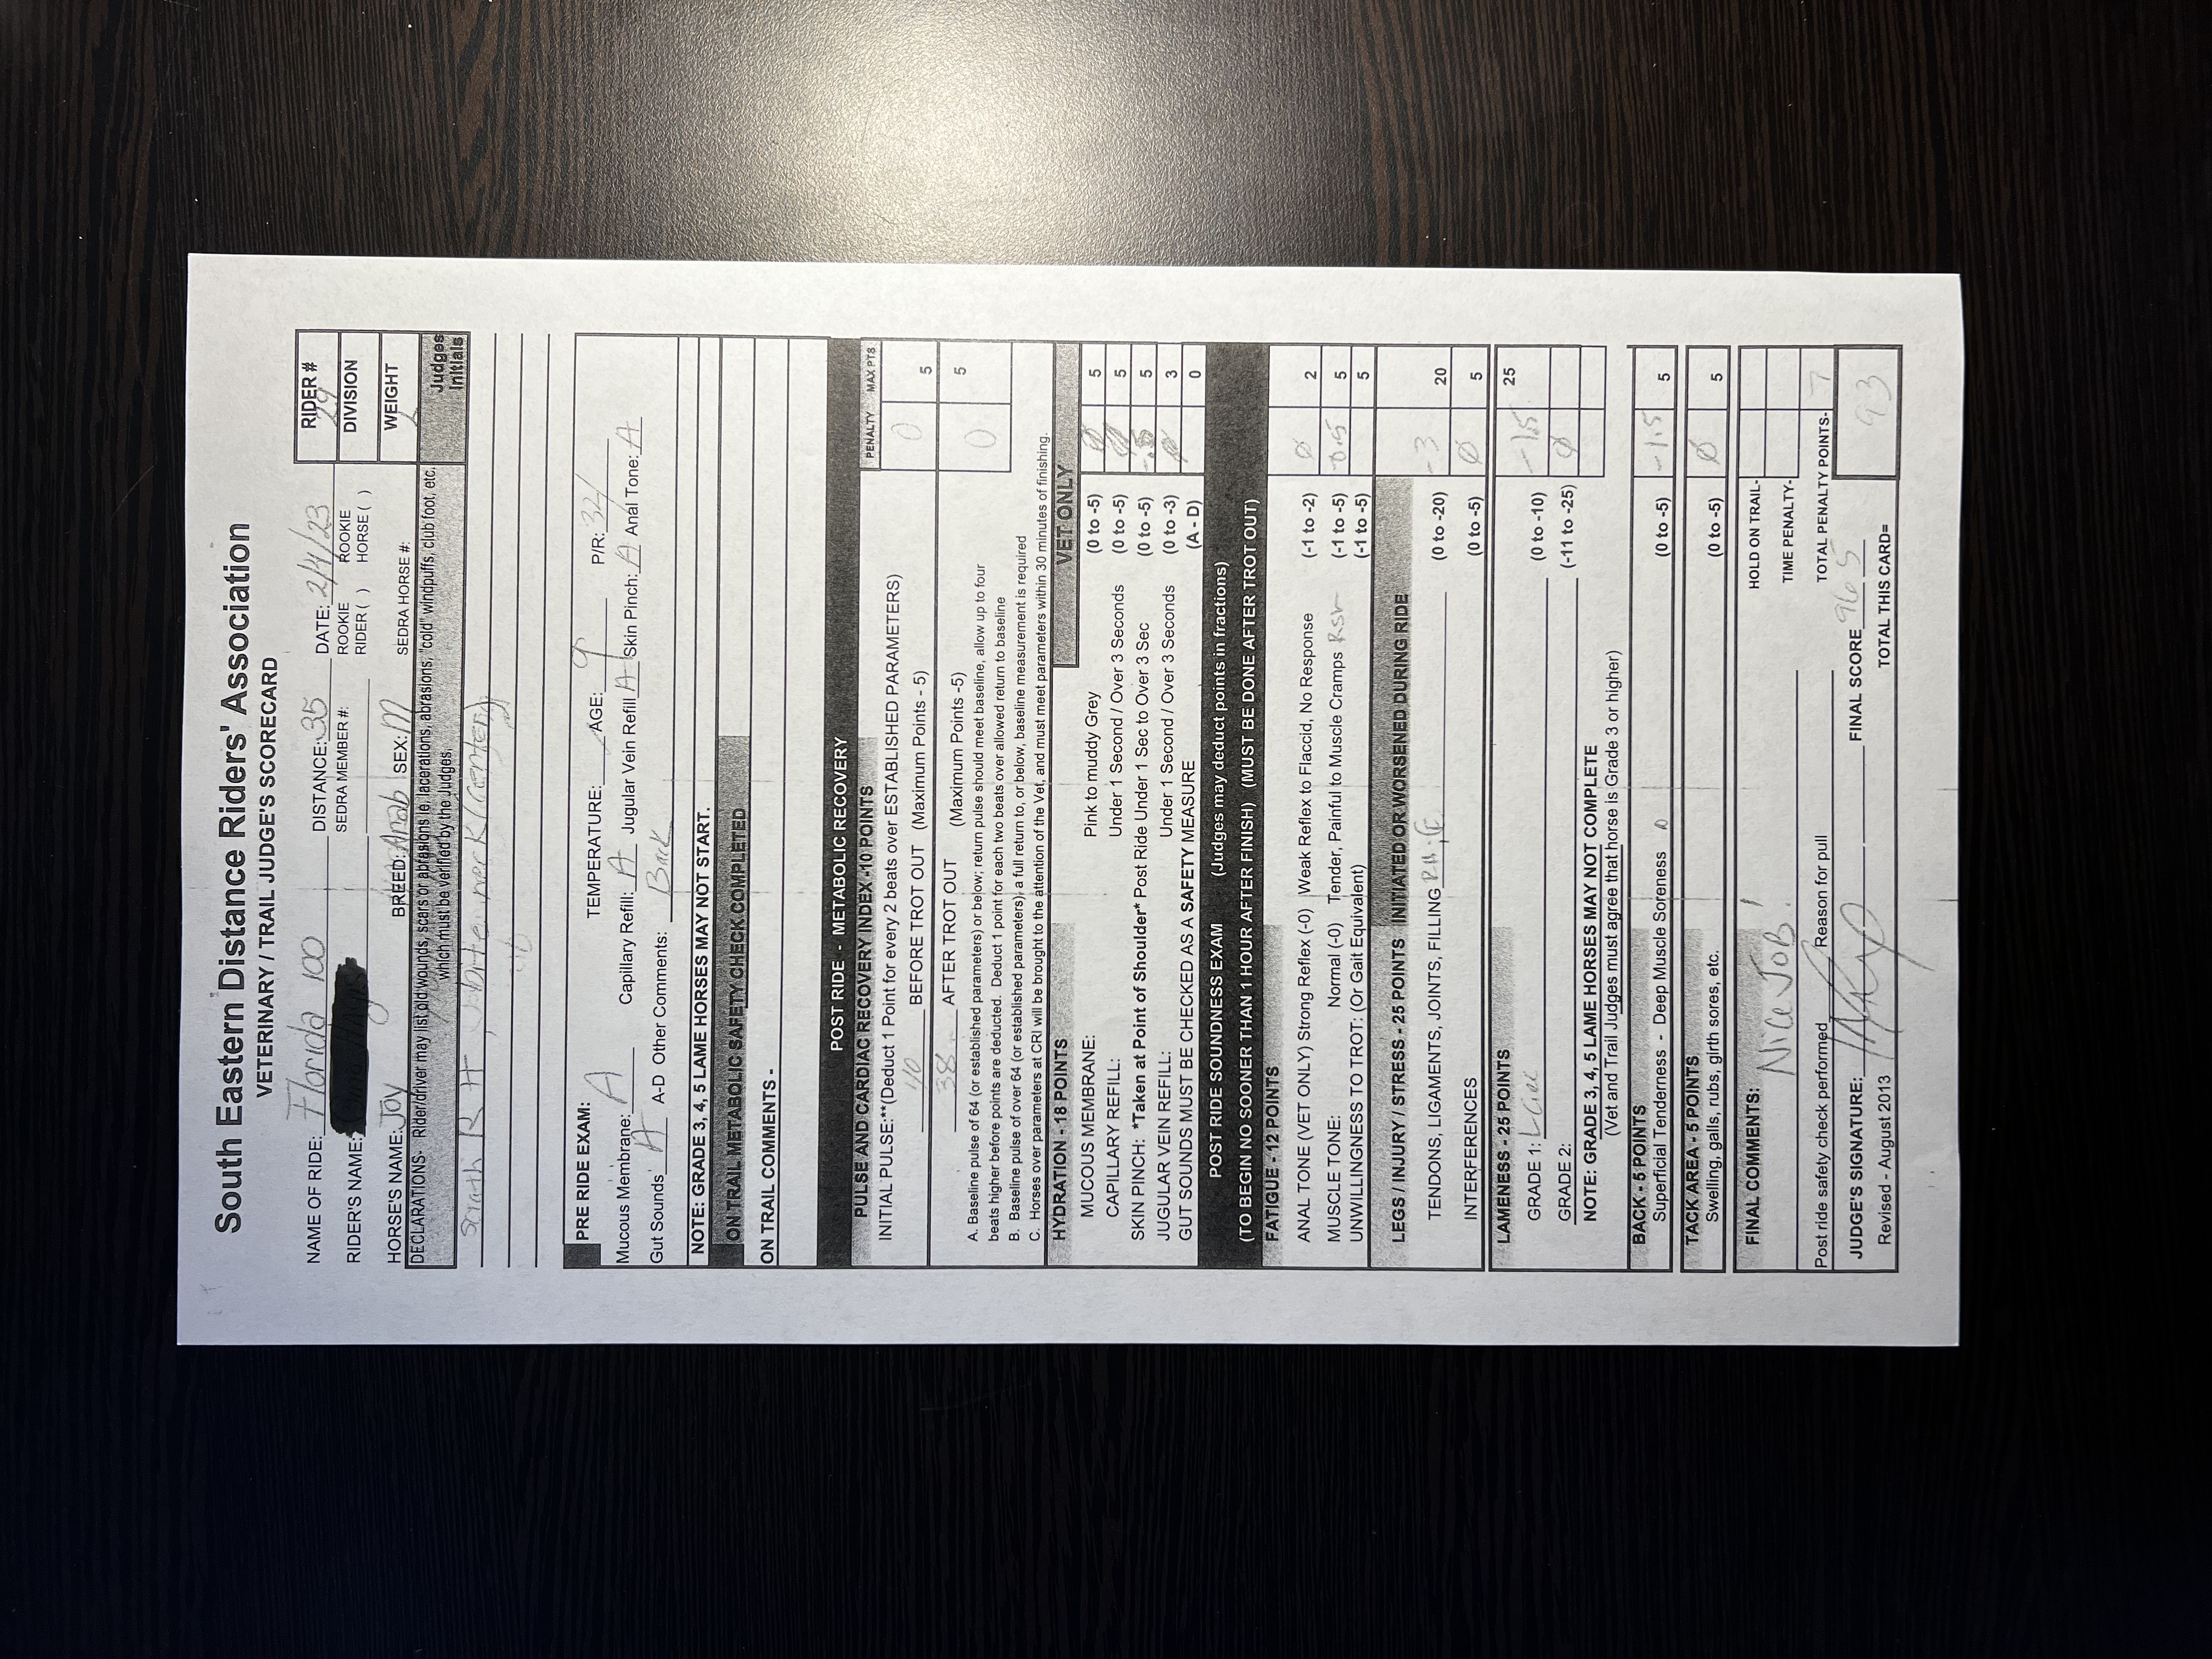 South Eastern Distance Riders' Association
VETERINARY / TRAIL JUDGE'S SCORECARD
NAME OF RIDE: Florida 100 DISTANCE: 35 DATE: 2/4/23 RIDER # 29
RIDER'S NAME: SEDRA MEMBER #: ROOKIE RIDER ( ) ROOKIE HORSE ( ) DIVISION
HORSE'S NAME: Joy BREED: Arab SEX: M SEDRA HORSE #: WEIGHT L
DECLARATIONS- Rider/driver may list old wounds, scars or abrasions ie, lacerations, abrasions, "cold" windpuffs, club foot, etc.
which must be verified by the Judges,
Judges Initials
RH, bite neck (center)
PRE RIDE EXAM: TEMPERATURE: AGE: 9 P/R: 32/
Mucous Membrane: A Capillary Refill: A Jugular Vein Refill A Skin Pinch: A Anal Tone: A
Gut Sounds A A-D Other Comments: Back
NOTE: GRADE 3, 4, 5 LAME HORSES MAY NOT START.
ON TRAIL METABOLIC SAFETY CHECK COMPLETED
ON TRAIL COMMENTS -
POST RIDE - METABOLIC RECOVERY
PULSE AND CARDIAC RECOVERY INDEX -10 POINTS PENALTY MAX PTS
INITIAL PULSE:**(Deduct 1 Point for every 2 beats over ESTABLISHED PARAMETERS)
40 BEFORE TROT OUT (Maximum Points - 5) 0 5
38 AFTER TROT OUT (Maximum Points -5) 0 5
A. Baseline pulse of 64 (or established parameters) or below; return pulse should meet baseline, allow up to four
beats higher before points are deducted. Deduct 1 point for each two beats over allowed return to baseline
B. Baseline pulse of over 64 (or established parameters), a full return to, or below, baseline measurement is required
C. Horses over parameters at CRI will be brought to the attention of the Vet, and must meet parameters within 30 minutes of finishing.
HYDRATION - 18 POINTS VET ONLY
MUCOUS MEMBRANE: Pink to muddy Grey (0 to -5) 0 5
CAPILLARY REFILL: Under 1 Second / Over 3 Seconds (0 to -5) 0 5
SKIN PINCH: *Taken at Point of Shoulder* Post Ride Under 1 Sec to Over 3 Sec (0 to -5) -.5 5
JUGULAR VEIN REFILL: Under 1 Second / Over 3 Seconds (0 to -3) 0 3
GUT SOUNDS MUST BE CHECKED AS A SAFETY MEASURE (A - D) 0
POST RIDE SOUNDNESS EXAM (Judges may deduct points in fractions)
(TO BEGIN NO SOONER THAN 1 HOUR AFTER FINISH) (MUST BE DONE AFTER TROT OUT)
FATIGUE - 12 POINTS
ANAL TONE (VET ONLY) Strong Reflex (-0) Weak Reflex to Flaccid, No Response (-1 to -2) Ø 2
MUSCLE TONE: Normal (-0) Tender, Painful to Muscle Cramps (-1 to -5) -0.5 5
UNWILLINGNESS TO TROT: (Or Gait Equivalent) (-1 to -5) 5
LEGS / INJURY / STRESS - 25 POINTS INITIATED OR WORSENED DURING RIDE
TENDONS, LIGAMENTS, JOINTS, FILLING (0 to -20) -3 20
INTERFERENCES (0 to -5) Ø 5
LAMENESS - 25 POINTS 25
GRADE 1: (0 to -10) -1.5
GRADE 2: (-11 to -25) Ø
NOTE: GRADE 3, 4, 5 LAME HORSES MAY NOT COMPLETE
(Vet and Trail Judges must agree that horse is Grade 3 or higher)
BACK - 5 POINTS
Superficial Tenderness - Deep Muscle Soreness (0 to -5) -1.5 5
TACK AREA - 5 POINTS
Swelling, galls, rubs, girth sores, etc. (0 to -5) Ø 5
FINAL COMMENTS: HOLD ON TRAIL-
Nice JOB! TIME PENALTY-
Post ride safety check performed Reason for pull TOTAL PENALTY POINTS- 7
JUDGE'S SIGNATURE: FINAL SCORE 96 5
Revised - August 2013 TOTAL THIS CARD= 93